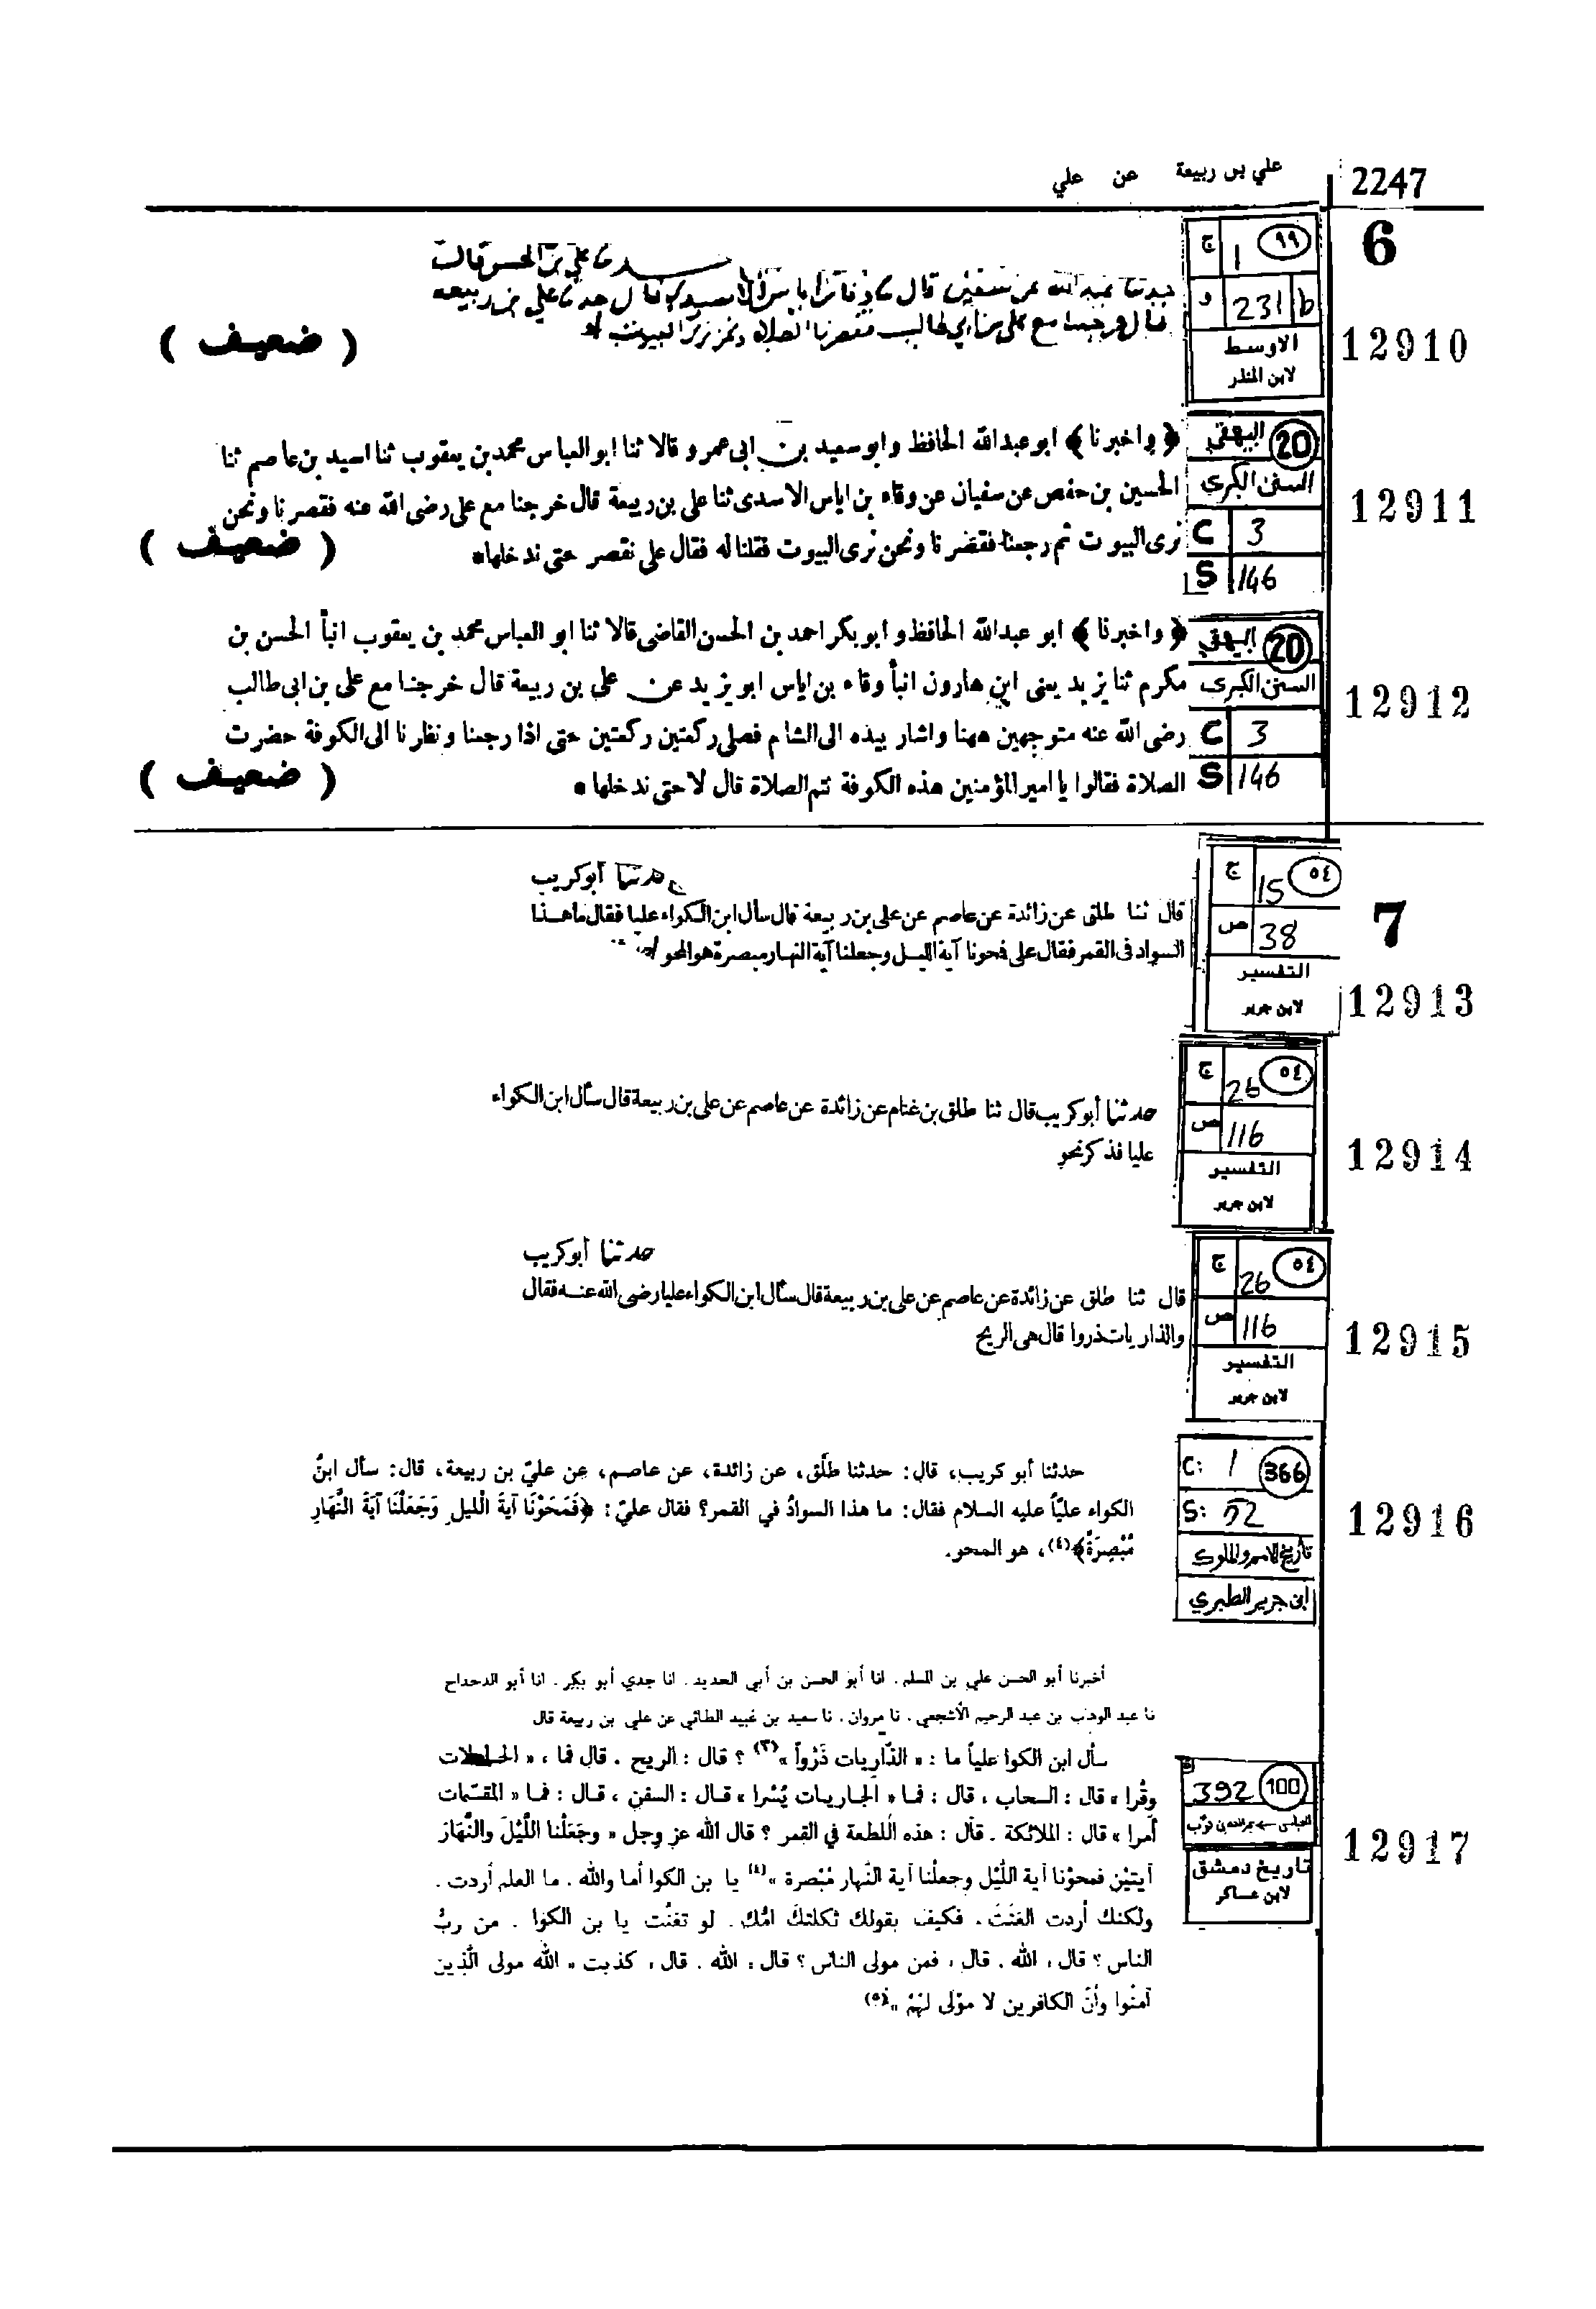 2247
علي بن ربيعة عن علي
6
ج 1 ٩٩
و 231 b
الاوسط
لابن المنذر
12910
علي بن الحسن قال
حدثنا عبد الله عن سفين قال
قال خرجنا مع علي بن ابي طالب فقصرنا الصلاة ونحن نرى البيوت
( ضعيف )
البيهقي 20
السنن الكبرى
C 3
S 146
12911
﴿ واخبرنا ﴾ ابو عبدالله الحافظ وابو سعيد بن ابى عمرو قالا ثنا ابو العباس محمد بن يعقوب ثنا اسيد بن عاصم ثنا
الحسين بن حفص عن سفيان عن وقاء بن اياس الاسدى ثنا على بن ربيعة قال خرجنا مع على رضى الله عنه فقصرنا ونحن
نرى البيوت ثم رجعنا فقصرنا ونحن نرى البيوت فقلنا له فقال على نقصر حتى ندخلها *
( ضعيف )
البيهقي 20
السنن الكبرى
C 3
S 146
12912
﴿ واخبرنا ﴾ ابو عبدالله الحافظ وابو بكر احمد بن الحسن القاضى قالا ثنا ابو العباس محمد بن يعقوب انبأ الحسن بن
مكرم ثنا يزيد يعنى ابن هارون انبأ وقاء بن اياس ابو يزيد عن على بن ربيعة قال خرجنا مع على بن ابى طالب
رضى الله عنه متوجهين ههنا واشار بيده الى الشام فصلى ركعتين ركعتين حتى اذا رجعنا ونظرنا الى الكوفة حضرت
الصلاة فقالوا يا امير المؤمنين هذه الكوفة نتم الصلاة قال لا حتى ندخلها *
( ضعيف )
ج 15 ٥٤
ص 38
التفسير
لابن جرير
7
12913
حدثنا أبوكريب
قال ثنا طلق عن زائدة عن عاصم عن على بن ربيعة قال سأل ابن الكواء عليا فقال ما هذا
السواد فى القمر فقال على فمحونا آية الليل وجعلنا آية النهار مبصرة هو المحو
ج 26 ٥٤
ص 116
التفسير
لابن جرير
12914
حدثنا أبوكريب قال ثنا طلق بن غنام عن زائدة عن عاصم عن على بن ربيعة قال سأل ابن الكواء
عليا فذكر نحو
ج 26 ٥٤
ص 116
التفسير
لابن جرير
12915
حدثنا أبوكريب
قال ثنا طلق عن زائدة عن عاصم عن على بن ربيعة قال سأل ابن الكواء عليا رضى الله عنه فقال
والذاريات ذروا قال هى الريح
C: 1 366
S: 52
تأريخ الامم والملوك
ابن جرير الطبري
12916
حدثنا أبو كريب، قال: حدثنا طَلْق، عن زائدة، عن عاصم، عن عليّ بن ربيعة، قال: سأل ابنُ
الكواء عليّاً عليه السلام فقال: ما هذا السوادُ في القمر؟ فقال عليّ: ﴿فَمَحَوْنَا آيَةَ الْليلِ وَجَعَلْنَا آيَةَ النَّهَارِ
مُبْصِرَةً﴾(٤)، هو المحو.
392 100
تاريخ دمشق
لابن عساكر
12917
أخبرنا أبو الحسن علي بن المسلم، انا أبو الحسن بن أبي الحديد، انا جدي أبو بكر، انا أبو الدحداح
نا عبد الوهاب بن عبد الرحيم الأشجعي، نا مروان، نا سعيد بن عبيد الطائي عن علي بن ربيعة قال
سأل ابن الكوا علياً ما : « الذّاريات ذَرْواً »(٣) ؟ قال : الريح . قال فما ، « الحاملات
وِقْرا » قال : السحاب ، قال : فما « الجاريات يُسْرا » قال : السفن ، قال : فما « المقسّمات
أمرا » قال : الملائكة . قال : هذه اللطعة في القمر ؟ قال الله عز وجل « وجَعَلْنا اللَّيْلَ والنَّهَارَ
آيتيْنِ فمحوْنا آية اللَّيْل وجعلْنا آية النَّهار مُبْصرة »(٤) يا بن الكوا أما والله ، ما العلم أردت .
ولكنك أردت العَنَتَ ، فكيف بقولك ثكلتكَ امُّك . لو تعنَّت يا بن الكوا . من ربُّ
الناس ؟ قال ، الله . قال ، فمن مولى الناس ؟ قال : الله . قال ، كذبت « الله مولى الَّذين
آمنُوا وأنّ الكافرين لا موْلى لهُمْ »(٥)